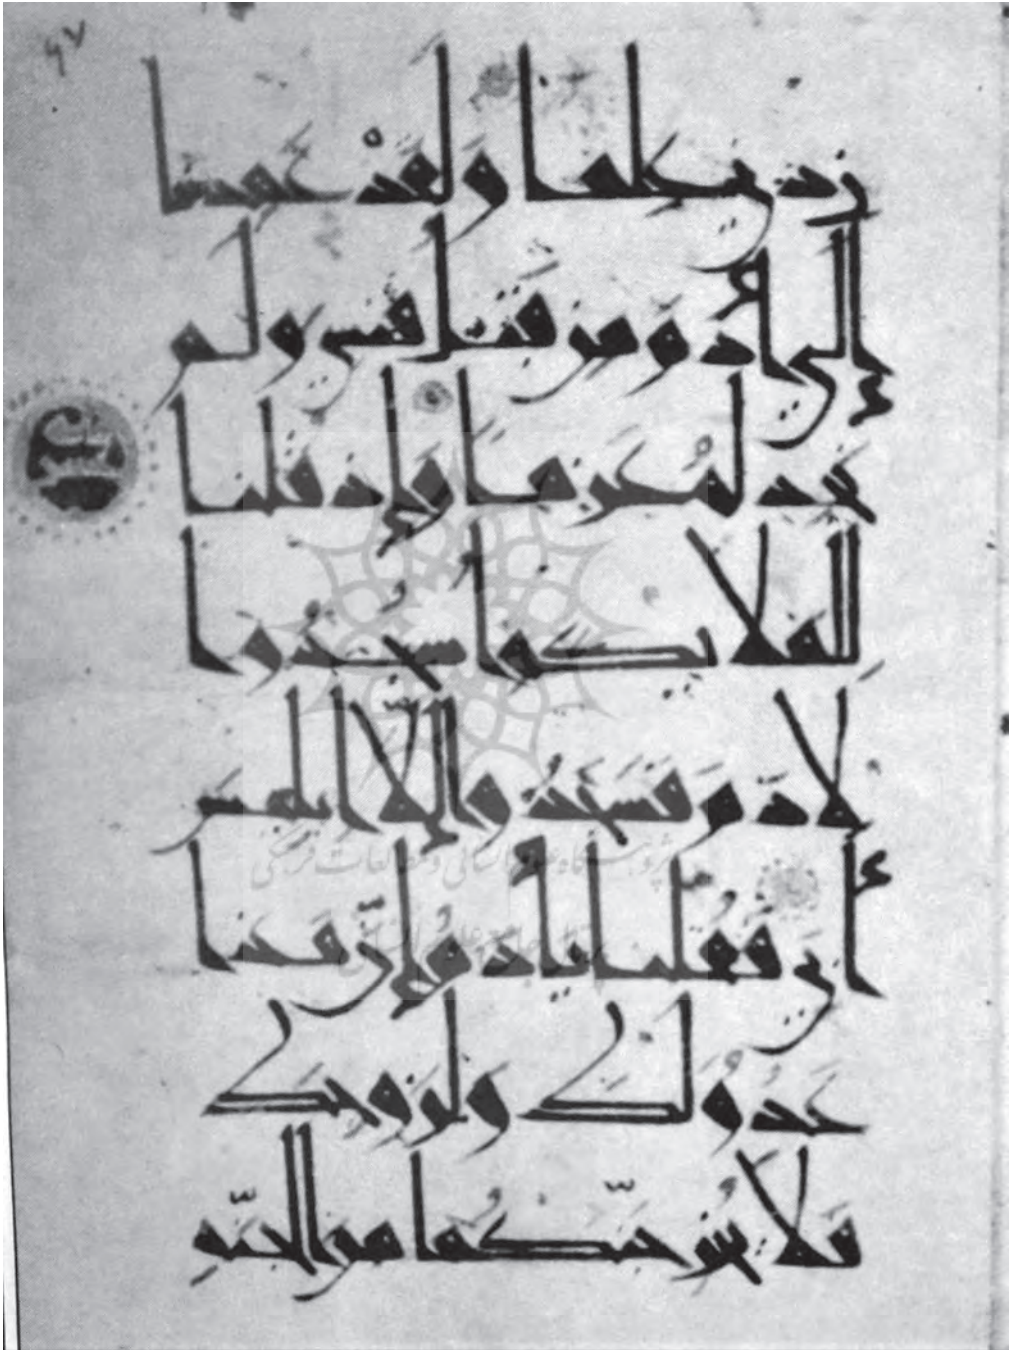 زدني علما ولقد عهدنا
إلى أدم من قبل فنسي ولم
نجد له عزما وإذ قلنا
للملائكة اسجدوا
لأدم فسجدوا إلا إبليس
أبى فقلنا يأدم إن هذا
عدو لك ولزوجك
فلا يخرجنكما من الجنة
پژوهشگاه علوم انسانی و مطالعات فرهنگی
پرتال جامع علوم انسانی